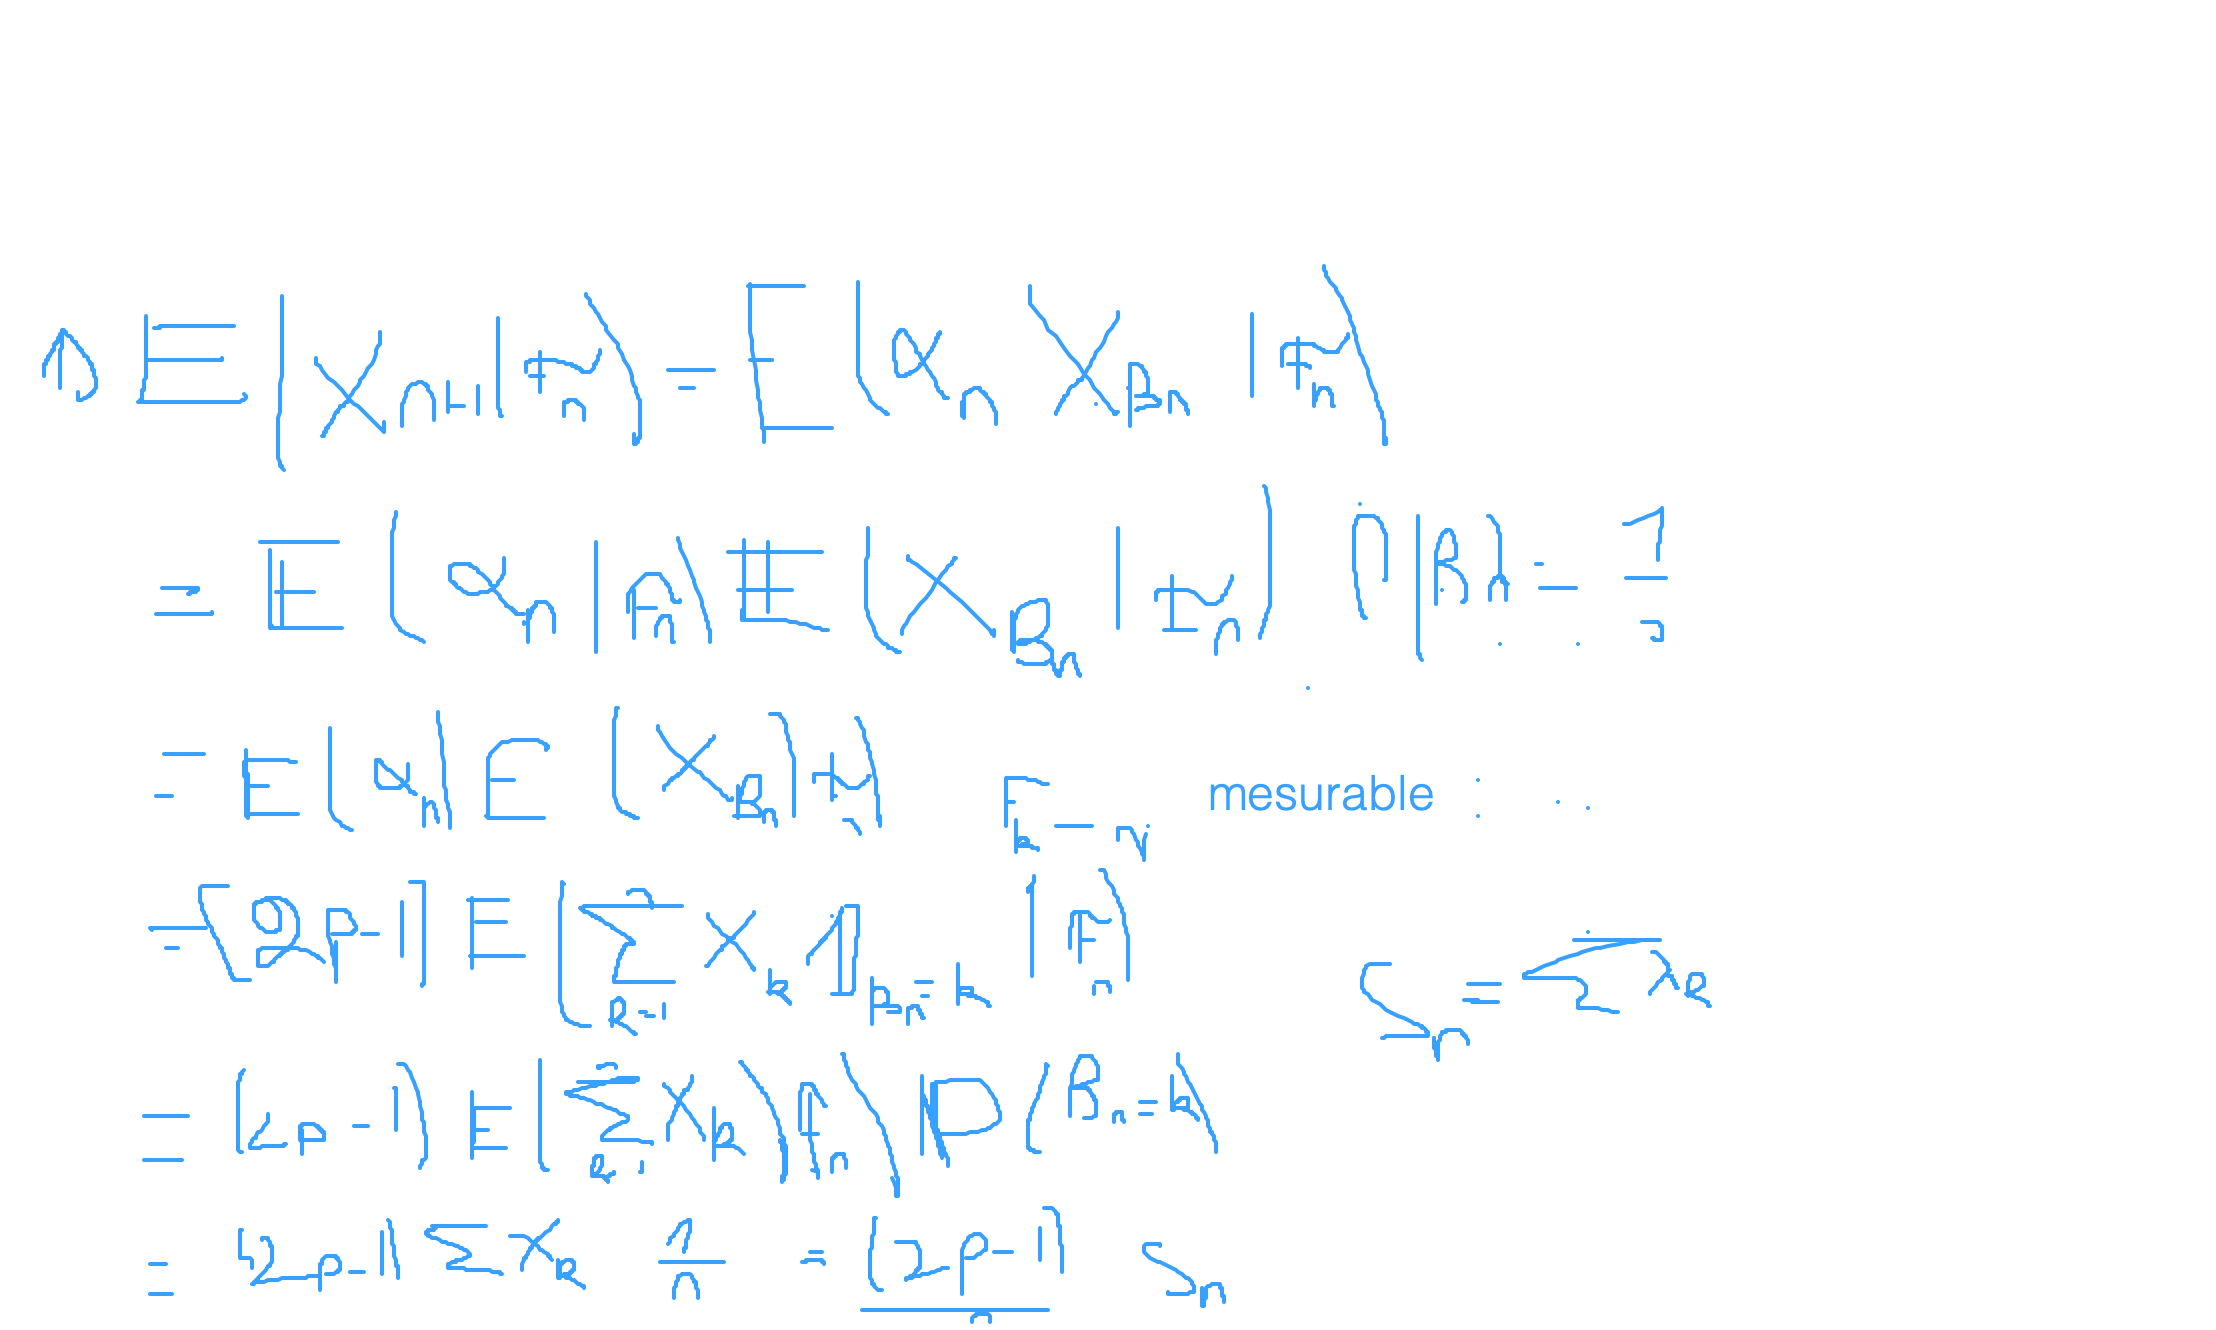 1) E(X_{n+1} | F_n) = E(α_n X_{β_n} | F_n)
= E(α_n | F_n) E(X_{β_n} | F_n) P(β_n) = 1/
= E(α_n) E(X_{β_n} | F_n) F_k - mesurable :
= [2p-1] E(∑_{k=1}^n X_k 1_{β_n = k} | F_n) S_n = ∑ X_k
= (2p-1) E(∑_{k=1}^n X_k | F_n) P(β_n = k)
= (2p-1) ∑ X_k 1/n = (2p-1)/n S_n